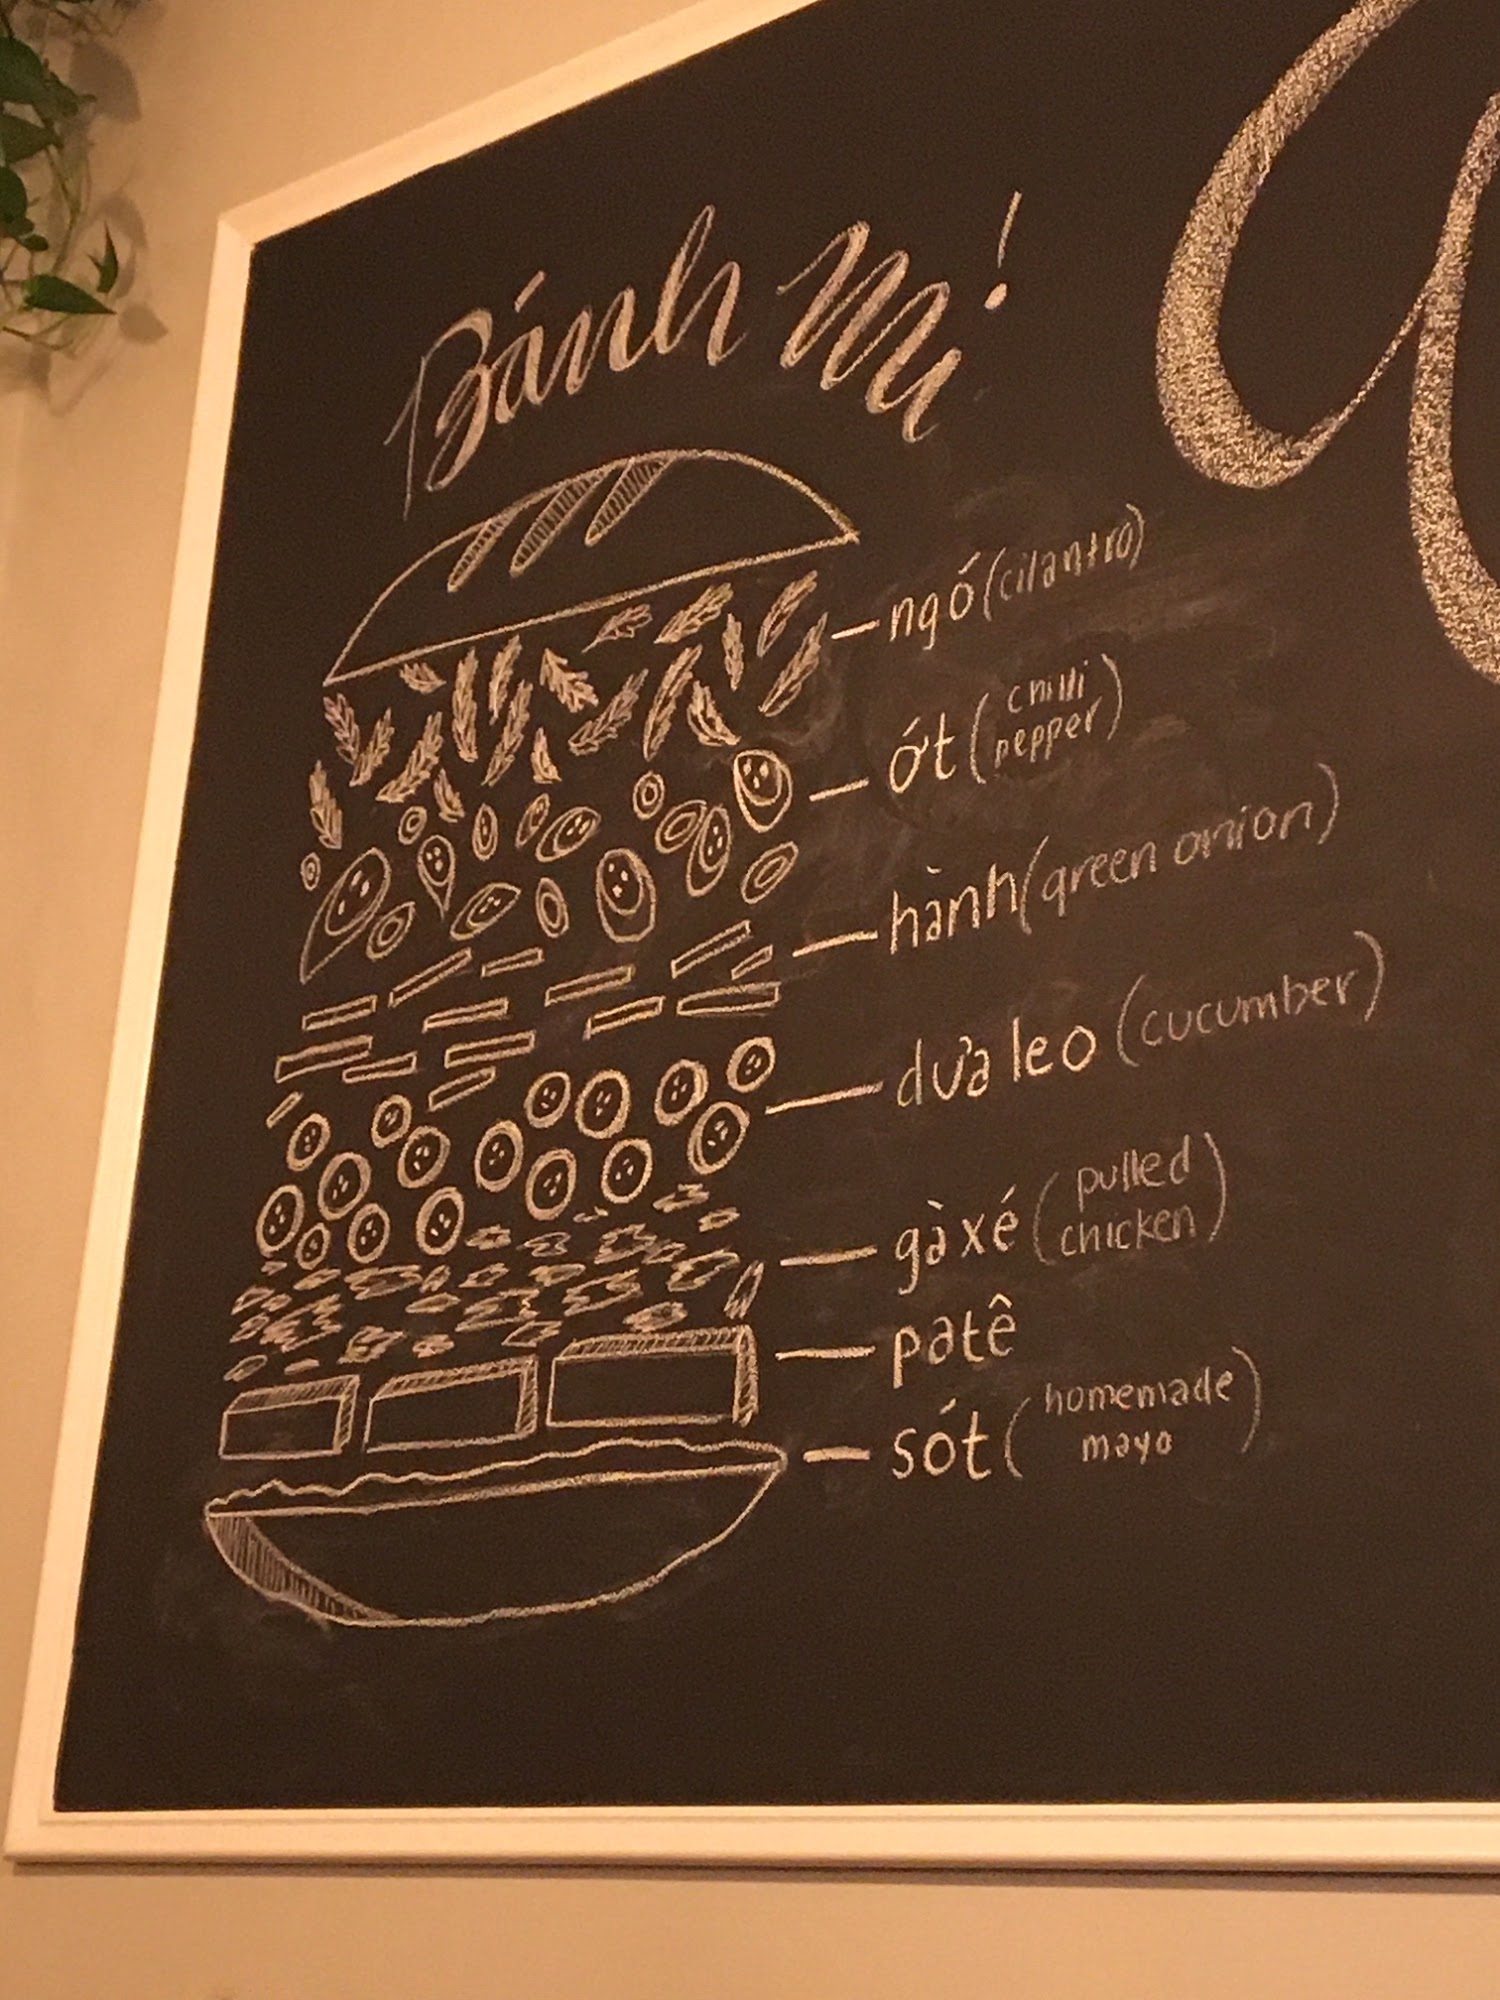 Bánh Mì!
ngó (cilantro)
ớt (chilli
pepper)
hành (green onion)
dưa leo (cucumber)
gà xé (pulled
chicken)
patê
sót (homemade
mayo)